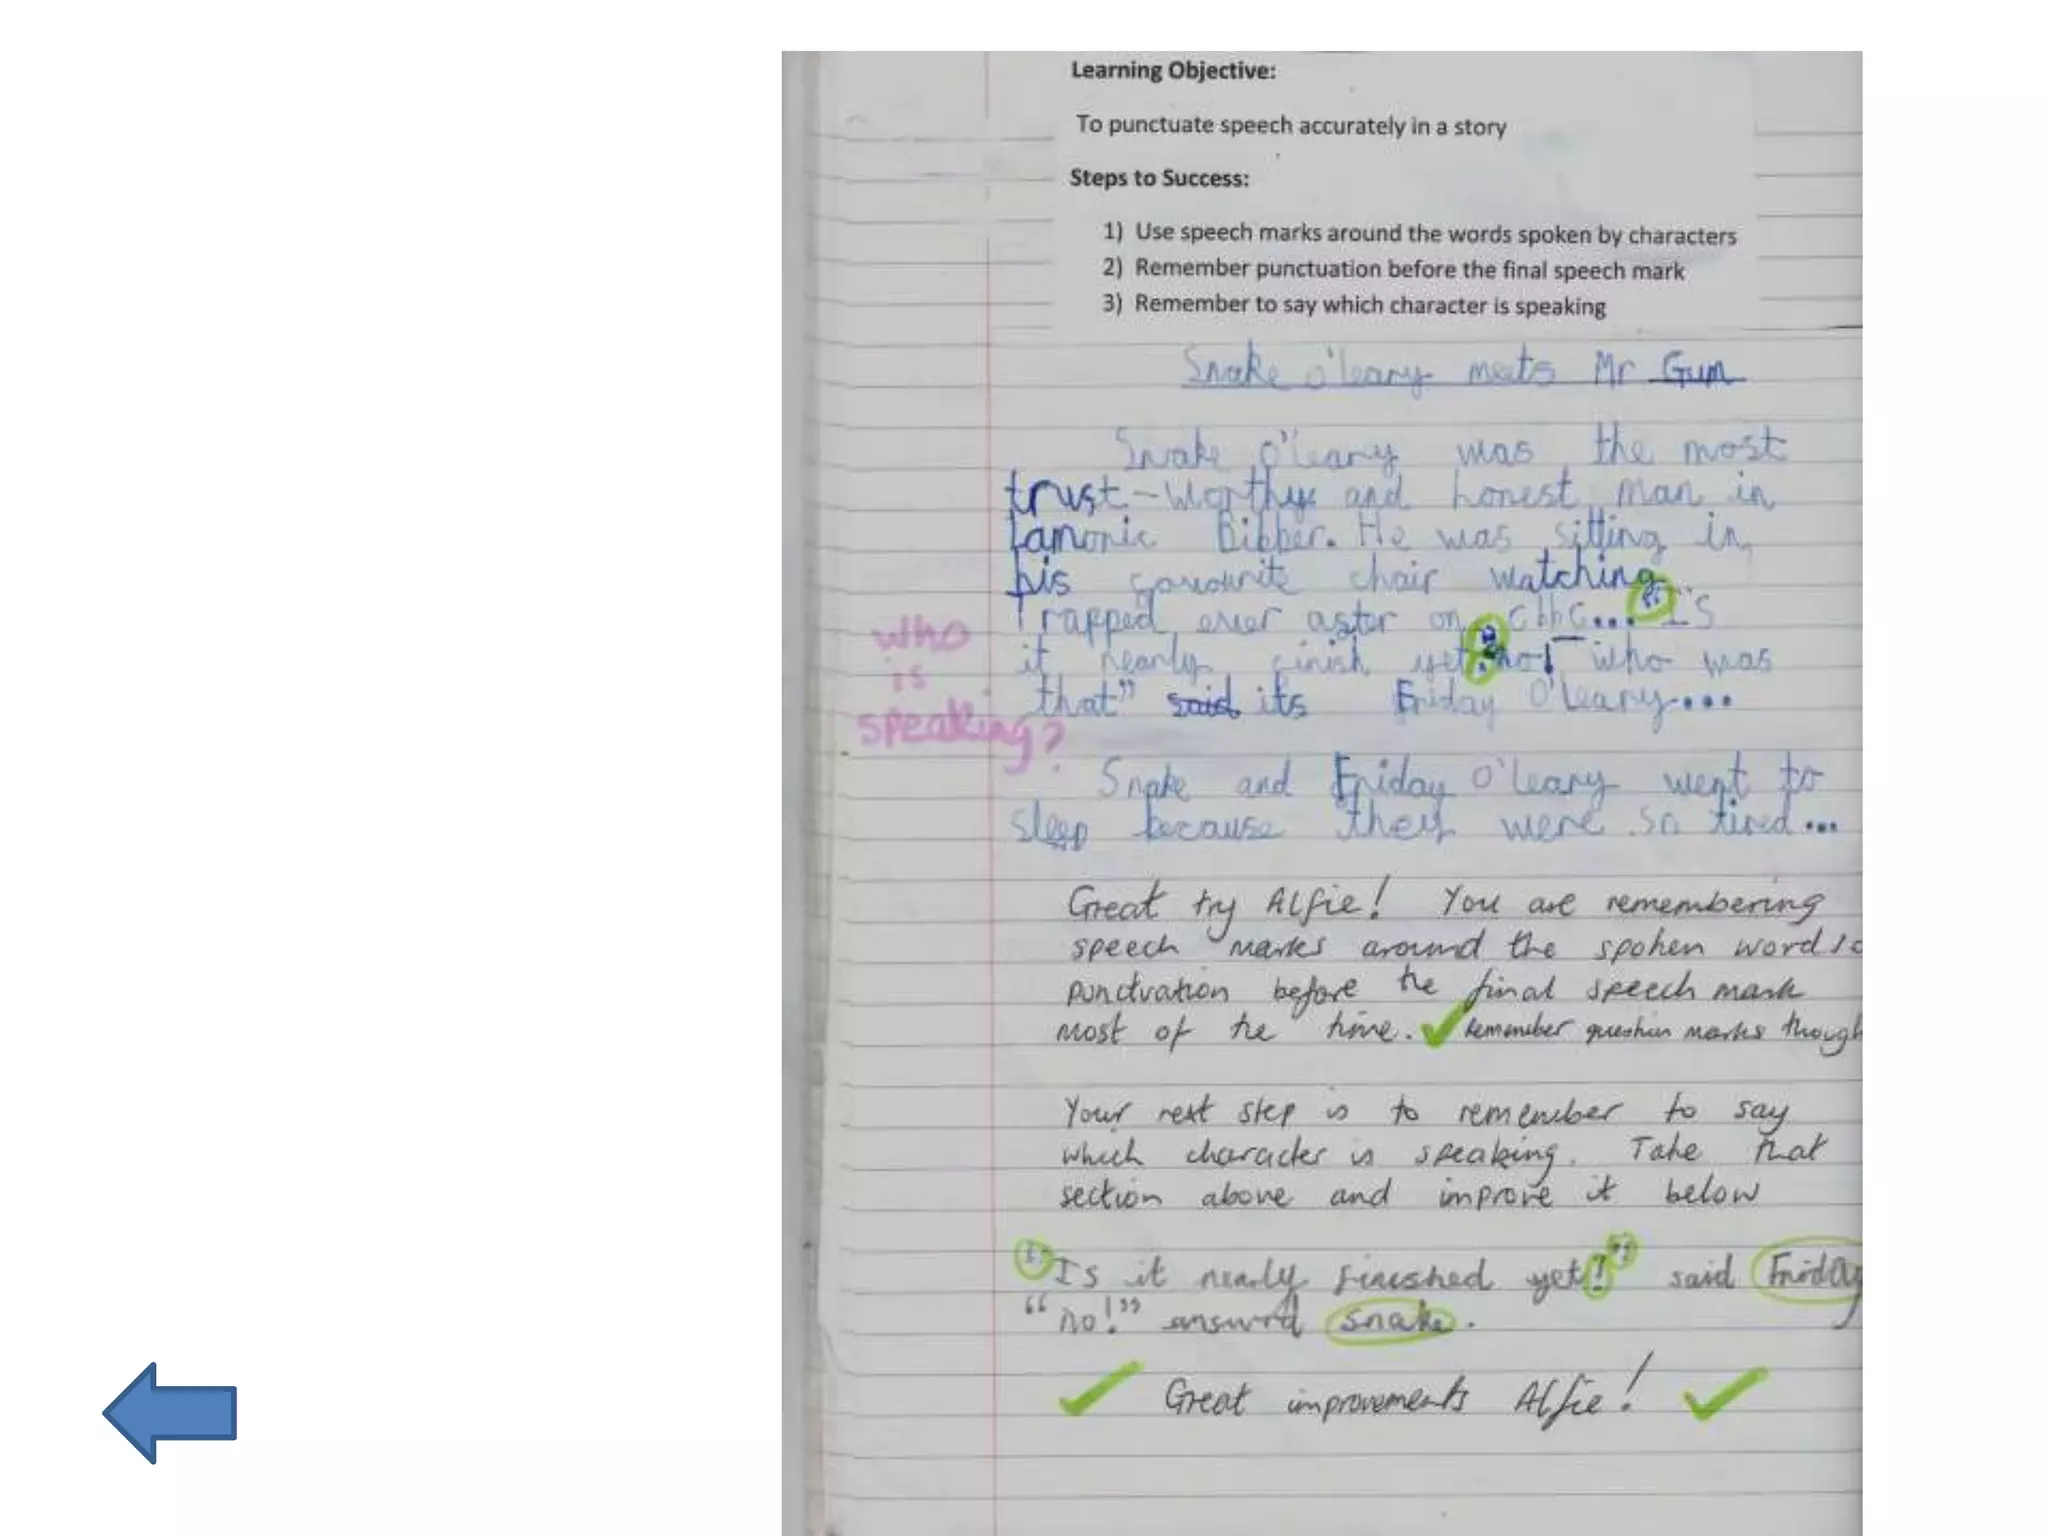 Learning Objective:
To punctuate speech accurately in a story
Steps to Success:
1) Use speech marks around the words spoken by characters
2) Remember punctuation before the final speech mark
3) Remember to say which character is speaking
Snake O'leary meets Mr Gum
Snake O'leary was the most
trust-worthy and honest man in
Lamonic Bibber. He was sitting in
his favourite chair watching
Trapped ever after on cbbc... "Is
it nearly finish yet? no! who was
that" said its Friday O'leary...
who
is
speaking?
Snake and Friday O'leary went to
sleep because they were so tired...
Great try Alfie! You are remembering
speech marks around the spoken words
punctuation before the final speech mark
most of the time. Remember question marks though
Your next step is to remember to say
which character is speaking. Take that
section above and improve it below
"Is it nearly finished yet?" said Friday
"no!" answord snake.
Great improvements Alfie!